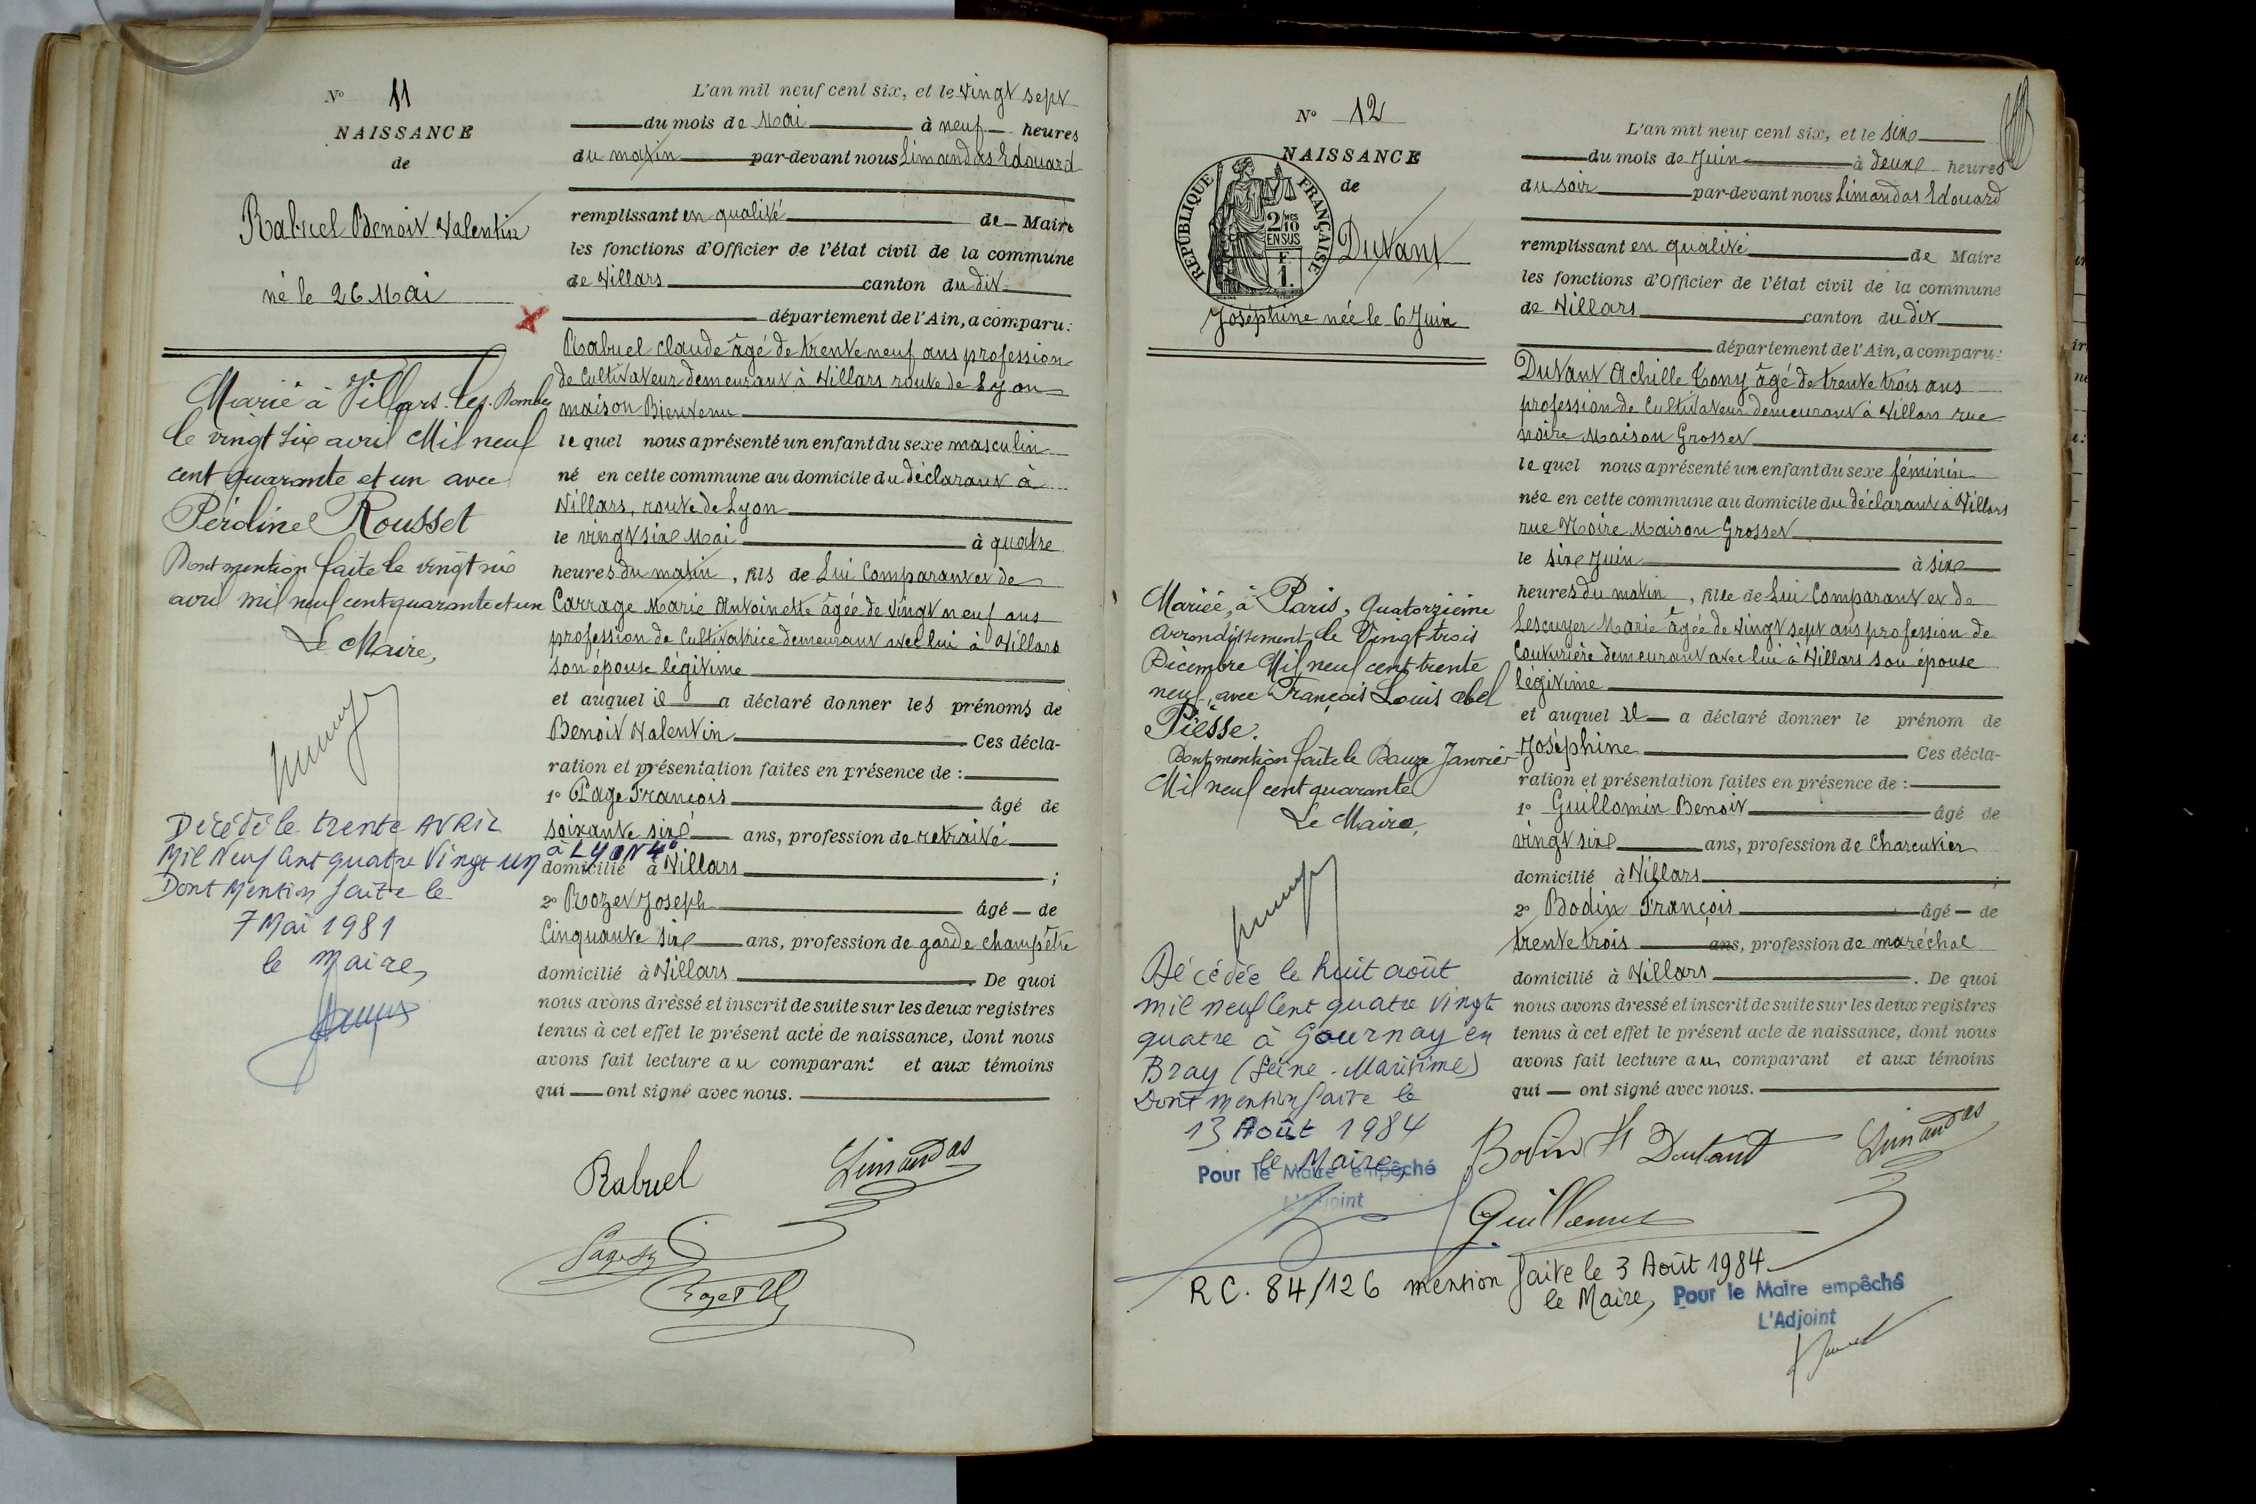 N° 11
NAISSANCE
de
Rabuel Benoit Valentin
né le 26 Mai
Marié à Villars-les-Dombes
le vingt six avril Mil neuf
cent quarante et un avec
Péroline Rousset
Dont mention faite le vingt six
avril mil neuf cent quarante et un
Le Maire,
Décédé le trente AVRIL
Mil Neuf Cent quatre Vingt un
à LYON 4e
Dont Mention faite le
7 Mai 1981
le Maire,
L'an mil neuf cent six, et le vingt sept
du mois de Mai à neuf heures
du matin par-devant nous Limandas Edouard
remplissant en qualité de Maire
les fonctions d'Officier de l'état civil de la commune
de Villars canton du dit
département de l'Ain, a comparu:
Rabuel Claude âgé de trente neuf ans profession
de Cultivateur demeurant à Villars route de Lyon
maison Bienvenu
lequel nous a présenté un enfant du sexe masculin
né en cette commune au domicile du déclarant à
Villars, route de Lyon
le vingt six Mai à quatre
heures du matin, fils de Lui Comparant et de
Carrage Marie Antoinette âgée de vingt neuf ans
profession de Cultivatrice demeurant avec lui à Villars
son épouse légitime
et auquel il a déclaré donner les prénoms de
Benoit Valentin Ces décla-
ration et présentation faites en présence de :
1° Page François âgé de
soixante six ans, profession de retraité
domicilié à Villars ;
2° Rozet Joseph âgé de
Cinquante six ans, profession de garde champêtre
domicilié à Villars De quoi
nous avons dressé et inscrit de suite sur les deux registres
tenus à cet effet le présent acte de naissance, dont nous
avons fait lecture au comparant et aux témoins
qui ont signé avec nous.
Rabuel Limandas
N° 12
NAISSANCE
de
RÉPUBLIQUE FRANÇAISE
2/10 EN SUS
F. 1.
Dutant
Joséphine née le 6 Juin
Mariée, à Paris, Quatorzième
Arrondissement le Vingt trois
Décembre Mil neuf cent trente
neuf, avec François Louis Abel
Piesse.
Dont mention faite le Douze Janvier
Mil neuf cent quarante
Le Maire,
Décédée le huit août
mil neuf Cent quatre vingt
quatre à Gournay en
Bray (Seine-Maritime)
Dont mention faite le
13 Août 1984
le Maire,
Pour le Maire empêché
L'Adjoint
L'an mil neuf cent six, et le six
du mois de Juin à deux heures
du soir par-devant nous Limandas Edouard
remplissant en qualité de Maire
les fonctions d'Officier de l'état civil de la commune
de Villars canton du dit
département de l'Ain, a comparu:
Dutant Achille Tony âgé de trente trois ans
profession de Cultivateur demeurant à Villars rue
noire Maison Grosset
lequel nous a présenté un enfant du sexe féminin
née en cette commune au domicile du déclarant à Villars
rue Noire Maison Grosset
le six Juin à six
heures du matin, fille de Lui Comparant et de
Lescuyer Marie âgée de vingt sept ans profession de
Couturière demeurant avec lui à Villars son épouse
légitime
et auquel il a déclaré donner le prénom de
Joséphine Ces décla-
ration et présentation faites en présence de :
1° Guillomin Benoit âgé de
vingt six ans, profession de Charcutier
domicilié à Villars ;
2° Bodin François âgé de
trente trois ans, profession de maréchal
domicilié à Villars . De quoi
nous avons dressé et inscrit de suite sur les deux registres
tenus à cet effet le présent acte de naissance, dont nous
avons fait lecture au comparant et aux témoins
qui ont signé avec nous.
Bodin Dutant Limandas
R C. 84/126 mention faite le 3 Août 1984
le Maire, Pour le Maire empêché
L'Adjoint